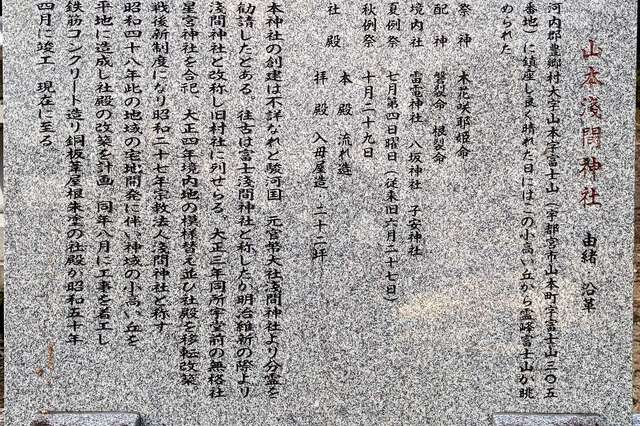 山本浅間神社　由緒　沿革
河内郡豊郷村大字山本字富士山（宇都宮市山本町字富士山三〇五
番地）に鎮座し良く晴れた日にはこの小高い丘から霊峰富士山が眺
められた
祭神　木花咲耶姫命
配神　磐裂命　根裂命
境内社　雷電神社　八坂神社　子安神社
夏例祭　七月第四日曜日（従来旧六月二十七日）
秋例祭　十月二十九日
社殿　本殿　流れ造
拝殿　入母屋造　二十二坪
本神社の創建は不詳なれど駿河国　元官幣大社浅間神社より分霊を
勧請したとある。往古は富士浅間神社と称したが明治維新の際より
浅間神社と改称し旧村社に列せらる。大正三年同所字堂前の無格社
星宮神社を合祀　大正四年境内地の模様替え並び社殿を移転改築
戦後新制度になり昭和二十七年宗教法人浅間神社と称す
昭和四十八年此の地域の宅地開発に伴い神域の小高い丘を
平地に造成し社殿の改築を計画　同年八月に工事を着工し
鉄筋コンクリート造り銅板葺屋根朱塗の社殿が昭和五十年
四月に竣工　現在に至る